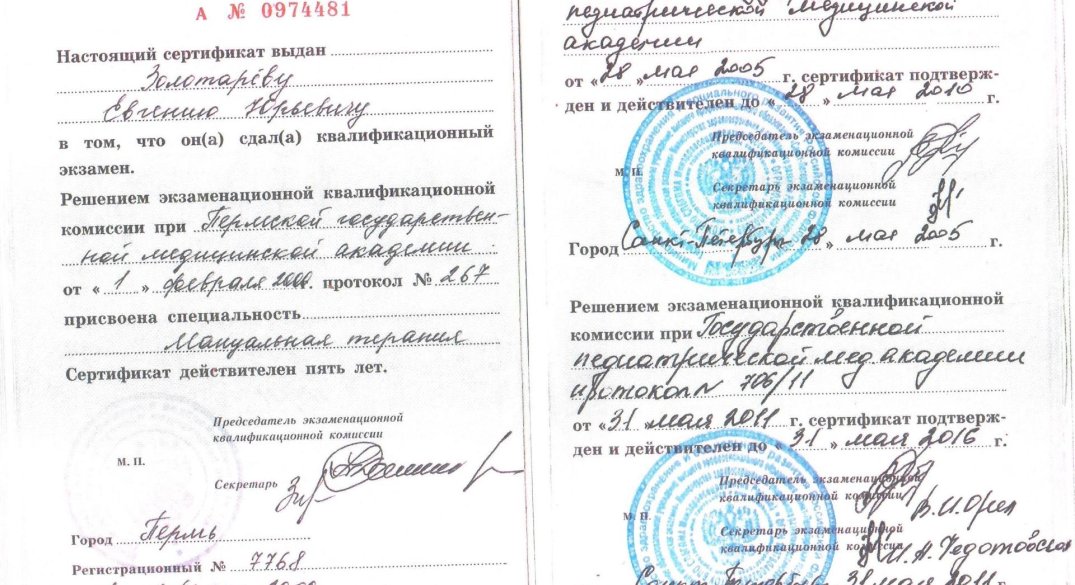 А № 0974481
Настоящий сертификат выдан
Золотарёву
Евгению Юрьевичу
в том, что он(а) сдал(а) квалификационный
экзамен.
Решением экзаменационной квалификационной
комиссии при Пермской государствен-
ной медицинской академии
от « 1 » февраля 2000г. протокол № 267
присвоена специальность
Мануальная терапия
Сертификат действителен пять лет.
Председатель экзаменационной
квалификационной комиссии
М. П.
Секретарь
Город Пермь
Регистрационный № 7768
педиатрической медицинской
академии
от «28» мая 2005 г. сертификат подтверж-
ден и действителен до «28» мая 2010 г.
Председатель экзаменационной
квалификационной комиссии
М. П.
Секретарь экзаменационной
квалификационной комиссии
Город Санкт-Петербург 28 » мая 2005 г.
Решением экзаменационной квалификационной
комиссии при Государственной
педиатрической мед академии
протокол N 706/11
от «31 » мая 2011 г. сертификат подтверж-
ден и действителен до « 31 » мая 2016 г.
Председатель экзаменационной
квалификационной комиссии
М. П.
Секретарь экзаменационной
квалификационной комиссии
31 мая 2011 г.